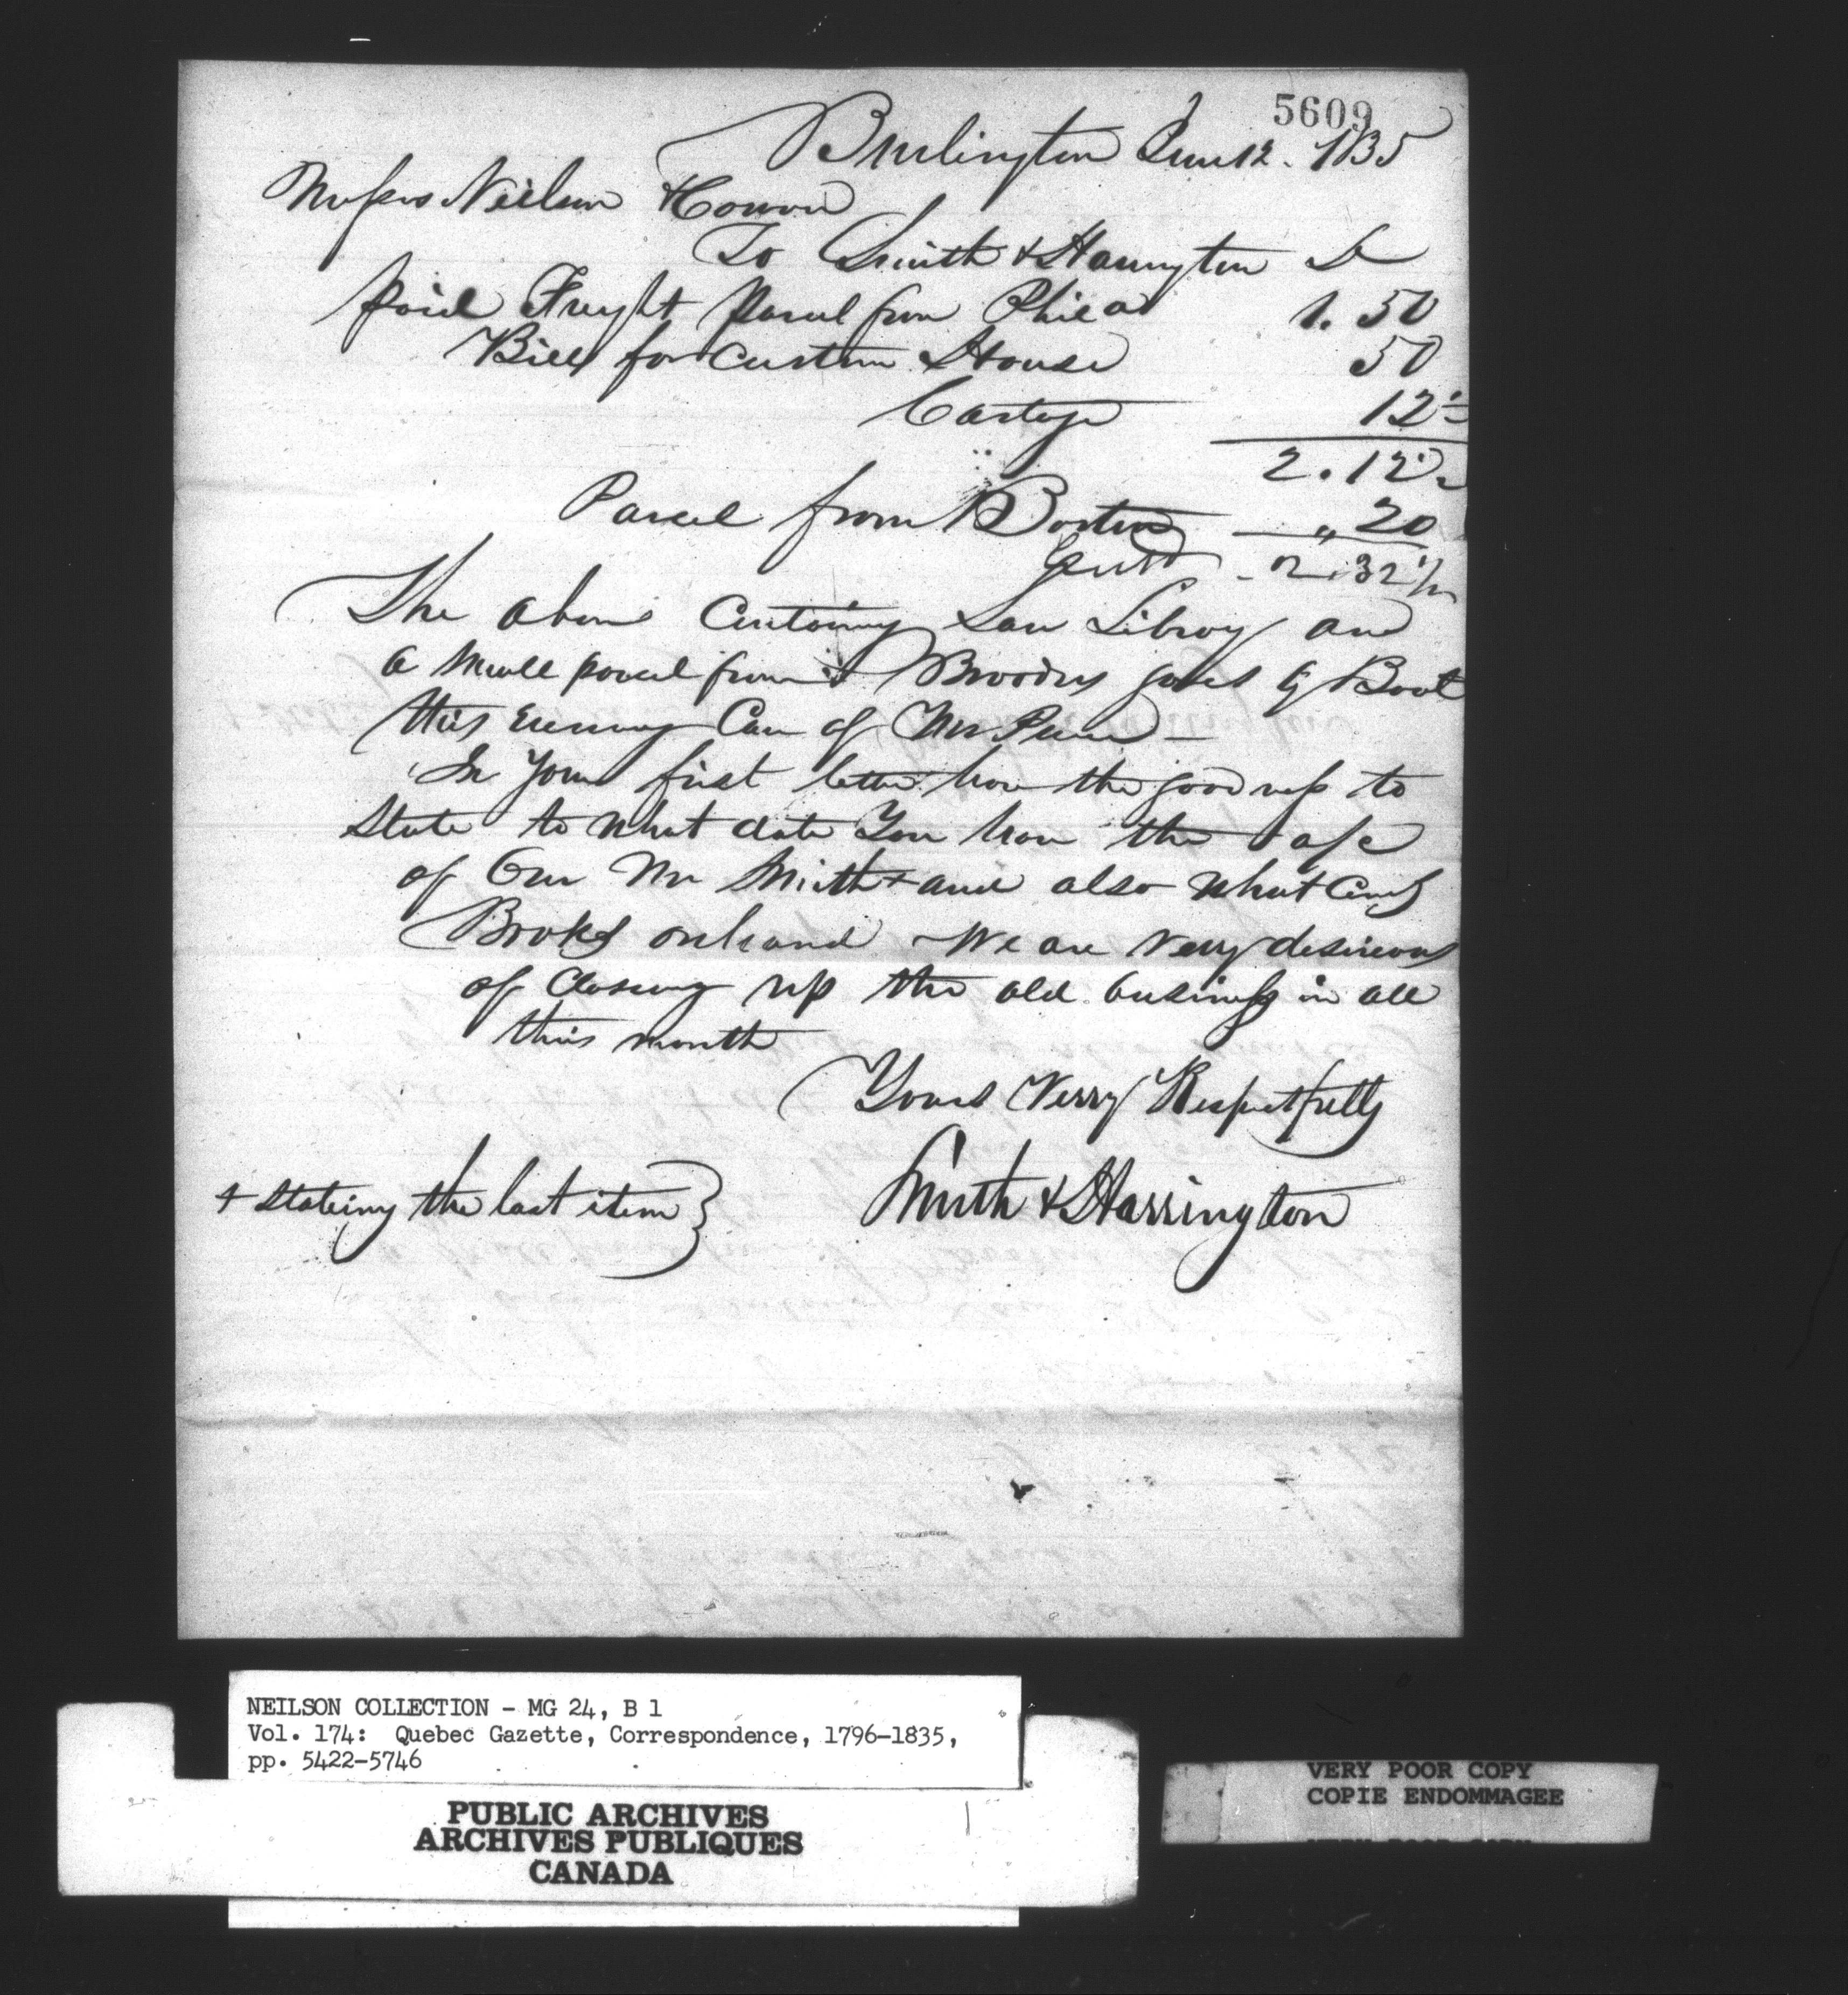 5609
Burlington June 12. 1835
Messrs Neilson & Cowan
To Smith & Harrington Dr
paid Freight parcel from Philad 1. 50
Bill for Custom House 50
Cartage 12½
2. 12½
Parcel from Boston „ 20
2.32½
The above Containing Law Library and
a small parcel from Brooders goes by Boat
this evening Care of Mr
In your first letter have the goodness to
State to what date You have the a/c
of Our Mr Smith + and also what
Books on hand We are Verry desireous
of Closeing up the old business in all
this month
Yours Verry Respectfully
Smith & Harrington
+ stateing the last item }
NEILSON COLLECTION - MG 24, B 1
Vol. 174: Quebec Gazette, Correspondence, 1796-1835,
pp. 5422-5746
PUBLIC ARCHIVES
ARCHIVES PUBLIQUES
CANADA
VERY POOR COPY
COPIE ENDOMMAGEE